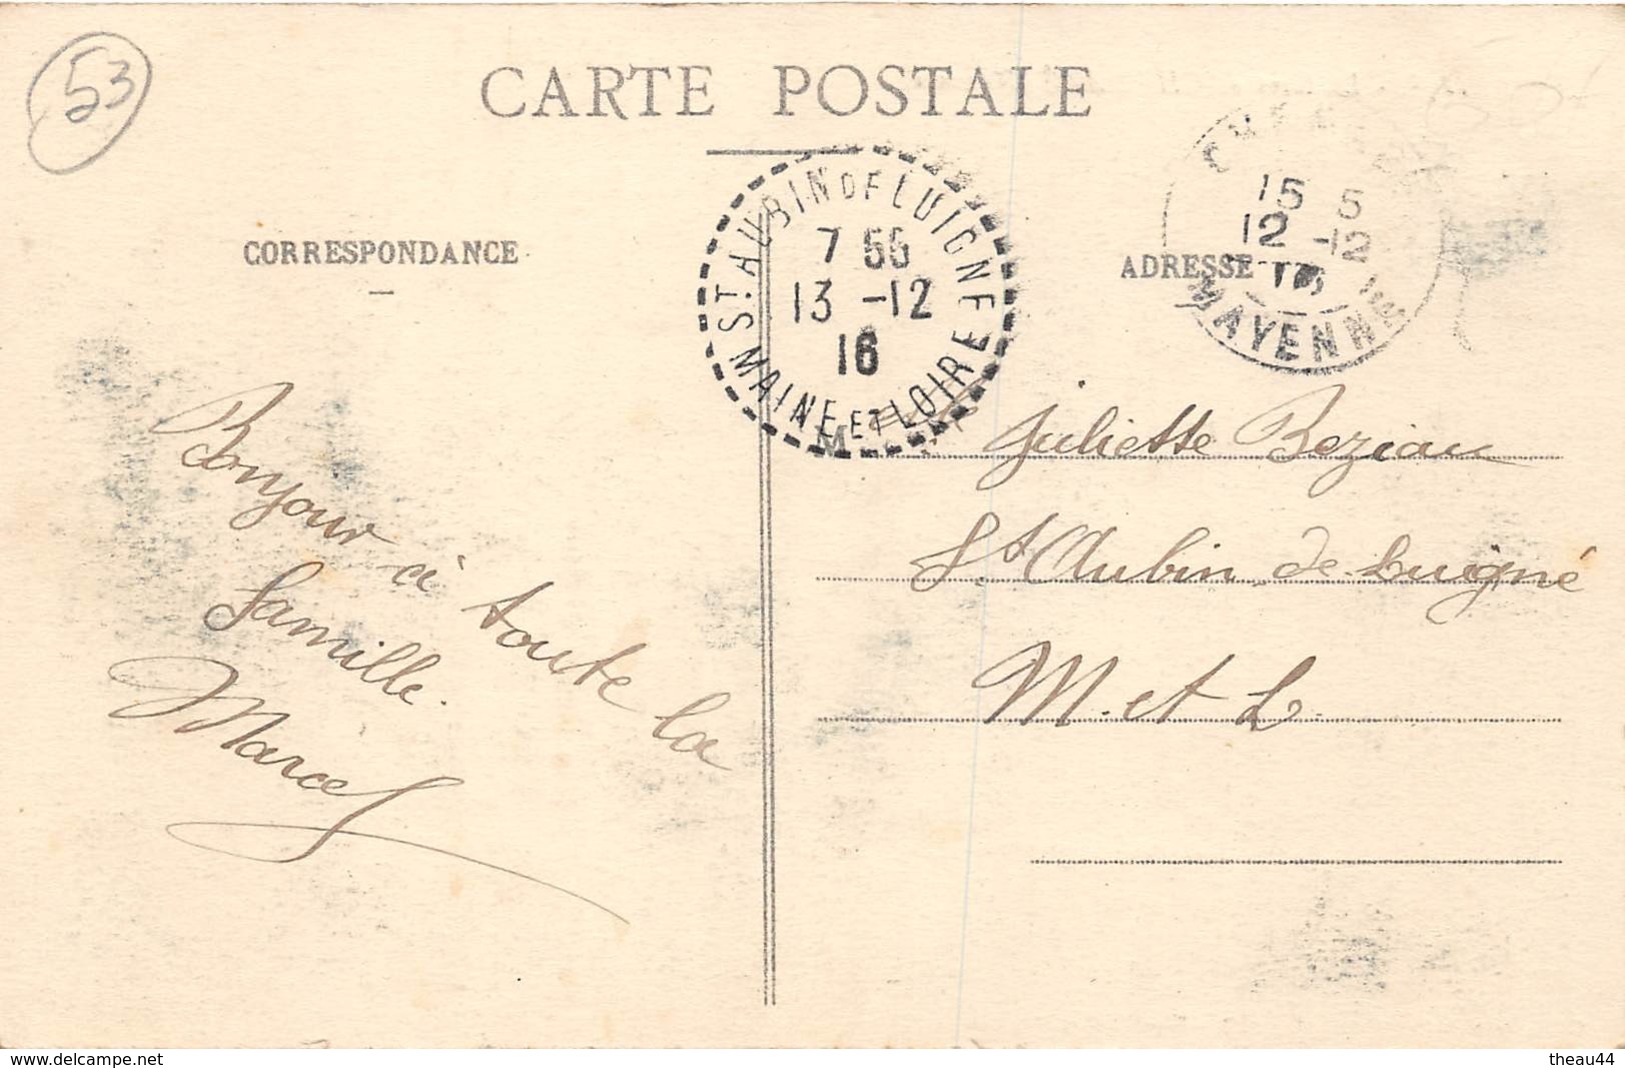 53
CARTE POSTALE
CORRESPONDANCE
ADRESSE
ST. AUBIN DE LUIGNE
7 55
13 -12
16
MAINE ET LOIRE
15 5
12 -12
16
MAYENNE
M elle Juliette Beziau
St Aubin-de-Luigné
M. et L.
Bonjour à toute la
famille.
Marcel
www.delcampe.net
theau44